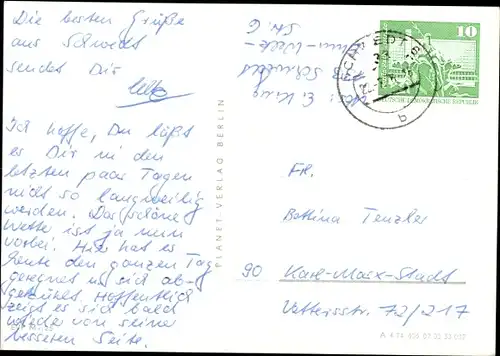 Die besten Grüße
aus Schwedt
sendet Dir
Ich hoffe, Du läßt
es Dir in den
letzten paar Tagen
nicht so langweilig
werden. Das schöne
Wetter ist ja nun
vorbei. Hier hat es
heute den ganzen Tag
geregnet u. sich ab-
gekühlt. Hoffentlich
zeigt es sich bald
wieder von seiner
besseren Seite.
PLANET-VERLAG BERLIN
10
DEUTSCHE DEMOKRATISCHE REPUBLIK
b
Fr.
Bettina Tenzler
90 Karl-Marx-Stadt
Vettersstr. 72/217